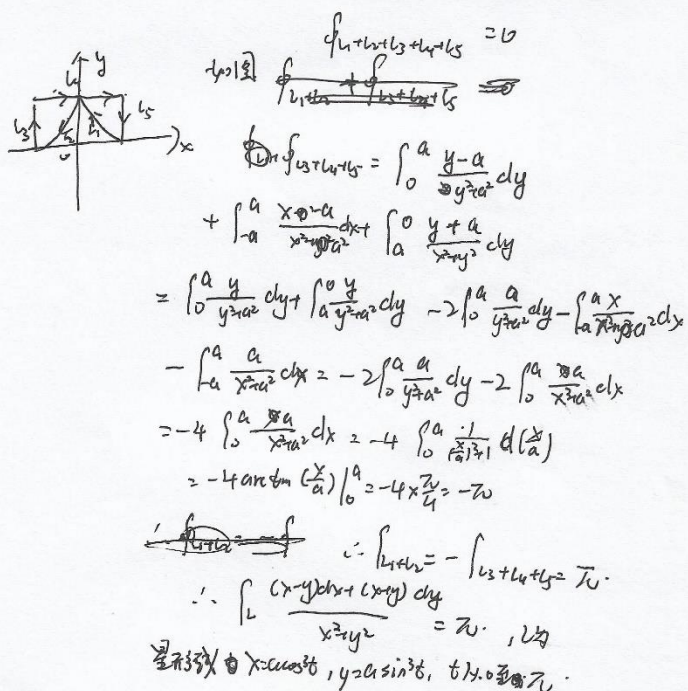 ∮_{L1+L2+L3+L4+L5} = 0
y
L4
L5
L3
L2
L1
0
x
∮_{L3+L4+L5} = ∫_0^a (y-a)/(y²+a²) dy
+ ∫_{-a}^a (x-a)/(x²+a²) dx + ∫_a^0 (y+a)/(x²+y²) dy
= ∫_0^a y/(y²+a²) dy + ∫_a^0 y/(y²+a²) dy - 2∫_0^a a/(y²+a²) dy - ∫_{-a}^a x/(x²+a²) dx
- ∫_{-a}^a a/(x²+a²) dx = -2∫_0^a a/(y²+a²) dy - 2∫_0^a a/(x²+a²) dx
= -4 ∫_0^a a/(x²+a²) dx = -4 ∫_0^a 1/((x/a)²+1) d(x/a)
= -4 arctan (x/a) |_0^a = -4×π/4 = -π
∴ ∫_{L1+L2} = -∫_{L3+L4+L5} = π.
∴ ∫_L ((x-y)dx+(x+y)dy)/(x²+y²) = π. , L为
星形线 x=acos³t, y=asin³t, t从0至π.